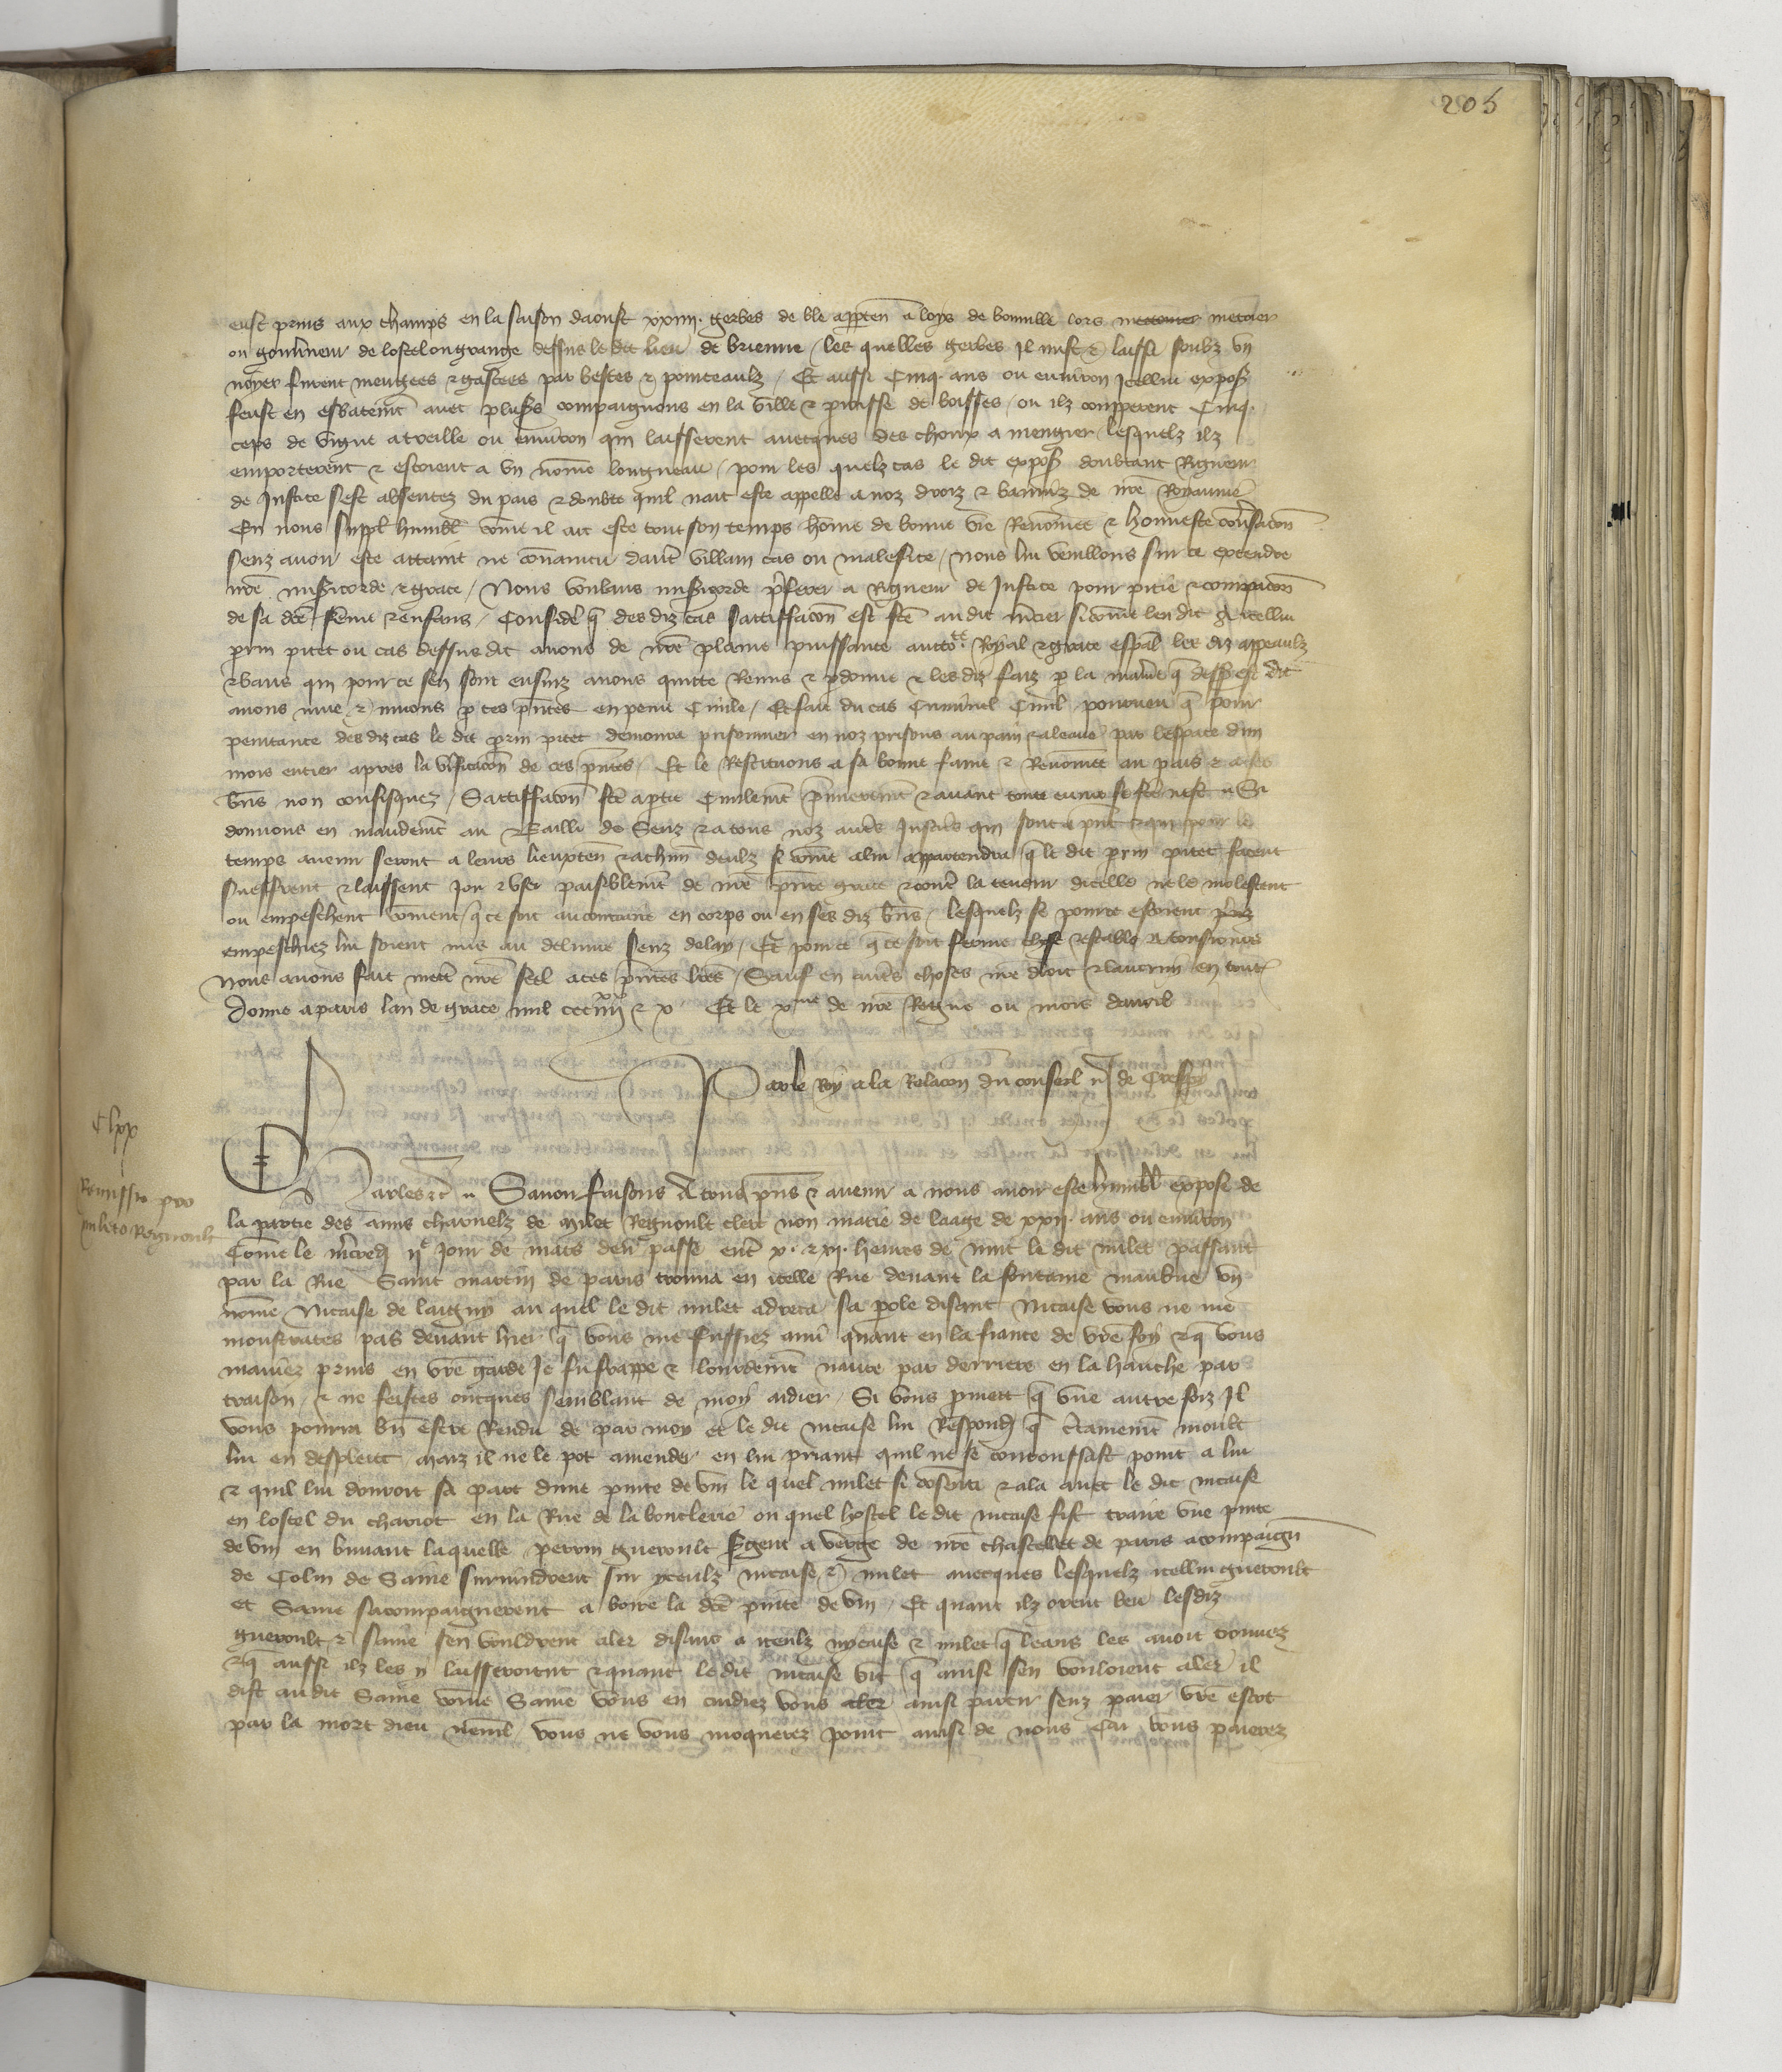 205
eust prins aux champs en la saison daoust xxiiii. gerbes de ble apparten a loys de bonville lors metoier
ou gouverneur de lostel ou grange dessus le dit lieu de brienne / les quelles gerbes Il mist & laissa soubz vn
noyer furent mengees & gastees par bestes & pourceaulx / Et aussi Cinq ans ou environ Icellui expos
feust en esbatemt avec plus compaignons en la ville & proisse de boisses / ou ilz copperent Cinq
ceps de vigne a treille ou environ qui laisserent avecques des choux a mengier lesquelz ilz
emporterent & estoient a vn nome longneau / pour les quelz cas le dit expos doubtant Rigueur
de Justice sest absentez du pais & doubte quil nait este appelle a noz droiz & banniz de nre Royaume
En nous suppl humbl come il ait este tout son temps home de bonne vie Renomee & honneste convsacon
senz avoir este attaint ne convaincu dautre villain cas ou malefice / Nous lui veuillons sur ce extendre
nre misicorde & grace / Nous voulans misicorde pferer a Rigueur de Justice pour pitie & compacon
de sa dce feme & enfans / Consider q des diz cas sattiffacon est fce au dit mcier si come len dit A icellui
prin pitet ou cas dessus dit avons de nre plaine puissance auctote Royal & grace espal les diz appeaulz
& bans qui pour ce sen sont ensuiz avons quitte Remis & pdonne & les diz faiz p la maniere q dessus est dit
avons mue & muons p ces pntes en peine Civile / Et fait du cas Criminel Civil pourveu q pour
penitance des diz cas le dit prin pitet demourra prisonnier en noz prisons au pain & a leaue par lespace dun
mois entier apres la vificacon de ces pntes / Et le Restituons a sa bonne fame & Renomee au pais & a ses
bns non confisquez / Sattiffacon fce a ptie Civilemt pmieremt & avant toute euvre se fce nest Si
donnons en mandemt au Bailli de Senz & a tous noz autres Justics qui sont a pnt & qui pour le
temps avenir seront a leurs lieuxten & a chun deulz si come a lui appartendra q le dit prin pitet facent
sueffrent & laissent Joir & vser paisiblemt de nre pnte grace & contre la teneur dicelle ne le molestent
ou empeschent coment q ce soit au contraire en corps ou en ses diz bns / lesquelz se pour ce estoient prins
empeschiez lui soient mis au delivre senz delay / Et pour ce q ce soit ferme chose & estable a tousiours
Nous avons fait metre nre seel a ces pntes lres / Sauf en autres choses nre droit & lautrui en toutes
Donne a paris lan de grace mil ccc iiii xx & x Et le xme de nre Regne ou mois davril
Par le Roy a la Relacon du conseil de Crespy
Clxx
Remissio pro
mileto Regnoult
Charles &c Savoir faisons A tous pns & avenir a nous avoir este humbl expose de
la partie des amis charnelz de milet Regnoult clerc non marie de laage de xxii. ans ou environ
Come le mcredi iie Jour de mars denr passe entre x. & xi. heures de nuit le dit milet passant
par la Rue Saint martin de paris trouva en icelle Rue devant la fontaine maubue vn
nome Nicaise de laigny au quel le dit milet adreca sa pole disant Nicaise vous ne me
monstrates pas devant hier q vous me fussiez ami quant en la fiance de vre foy & q vous
maviez prins en vre garde Je fu frappe & lourdemt navre par derriere en la hanche par
traison / & ne feistes oncques semblant de moy aidier / Si vous pmett q vne autre foiz Il
vous pourra bn estre Rendu de par moy et le dit nicaise lui Respondi q ctainemt moult
lui en despleut maiz il ne le pot amender en lui priant quil ne se courroussast point a lui
& quil lui donroit sa part dune pinte de vin le quel milet si cosenti & ala avec le dit nicaise
en lostel du chariot en la Rue de la bouclerie ou quel hostel le dit nicaise fist traire vne pinte
de vin en buvant laquelle perrin gueroult sgent a verge de nre chastellet de paris acompaign
de Colin de Same survindrent sur yceulz nicaise & milet avecques lesquelz icellui gueroult
et Same sacompaignerent a boire la dce pinte de vin / Et quant ilz orent beu lesdiz
gueroult & same sen vouldrent aler disant a iceulz nycaise & milet q leans les avoit trouvez
& q aussi ilz les y laisseroient & quant le dit nicaise vit q ainsi sen vouloient aler il
dist au dit Same come Same vous en cuidiez vous aler ainsi partir senz paier vre escot
par la mort dieu nenil vous ne vous moquerez point ainsi de nous Car vous paierez